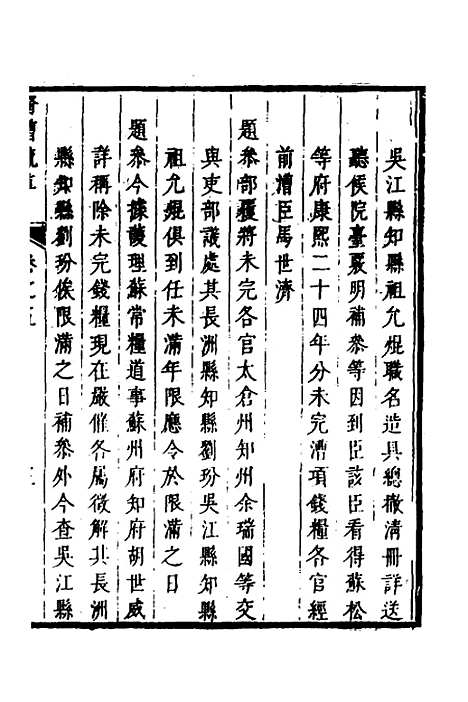 吳江縣知縣祖允焜職名造具總撒清冊詳送
聽候院臺覈明補叅等因到臣該臣看得蘇松
等府康熙二十四年分未完漕項錢糧各官經
前漕臣馬世濟
題叅部覆將未完各官太倉州知州余瑞國等交
與吏部議處其長洲縣知縣劉玢吳江縣知縣
祖允焜俱到任未滿年限應令於限滿之日
題叅今據護理蘇常糧道事蘇州府知府胡世威
詳稱除未完錢糧現在嚴催各屬徵解其長洲
縣知縣劉玢俟限滿之日補叅外今查吳江縣
卷之五